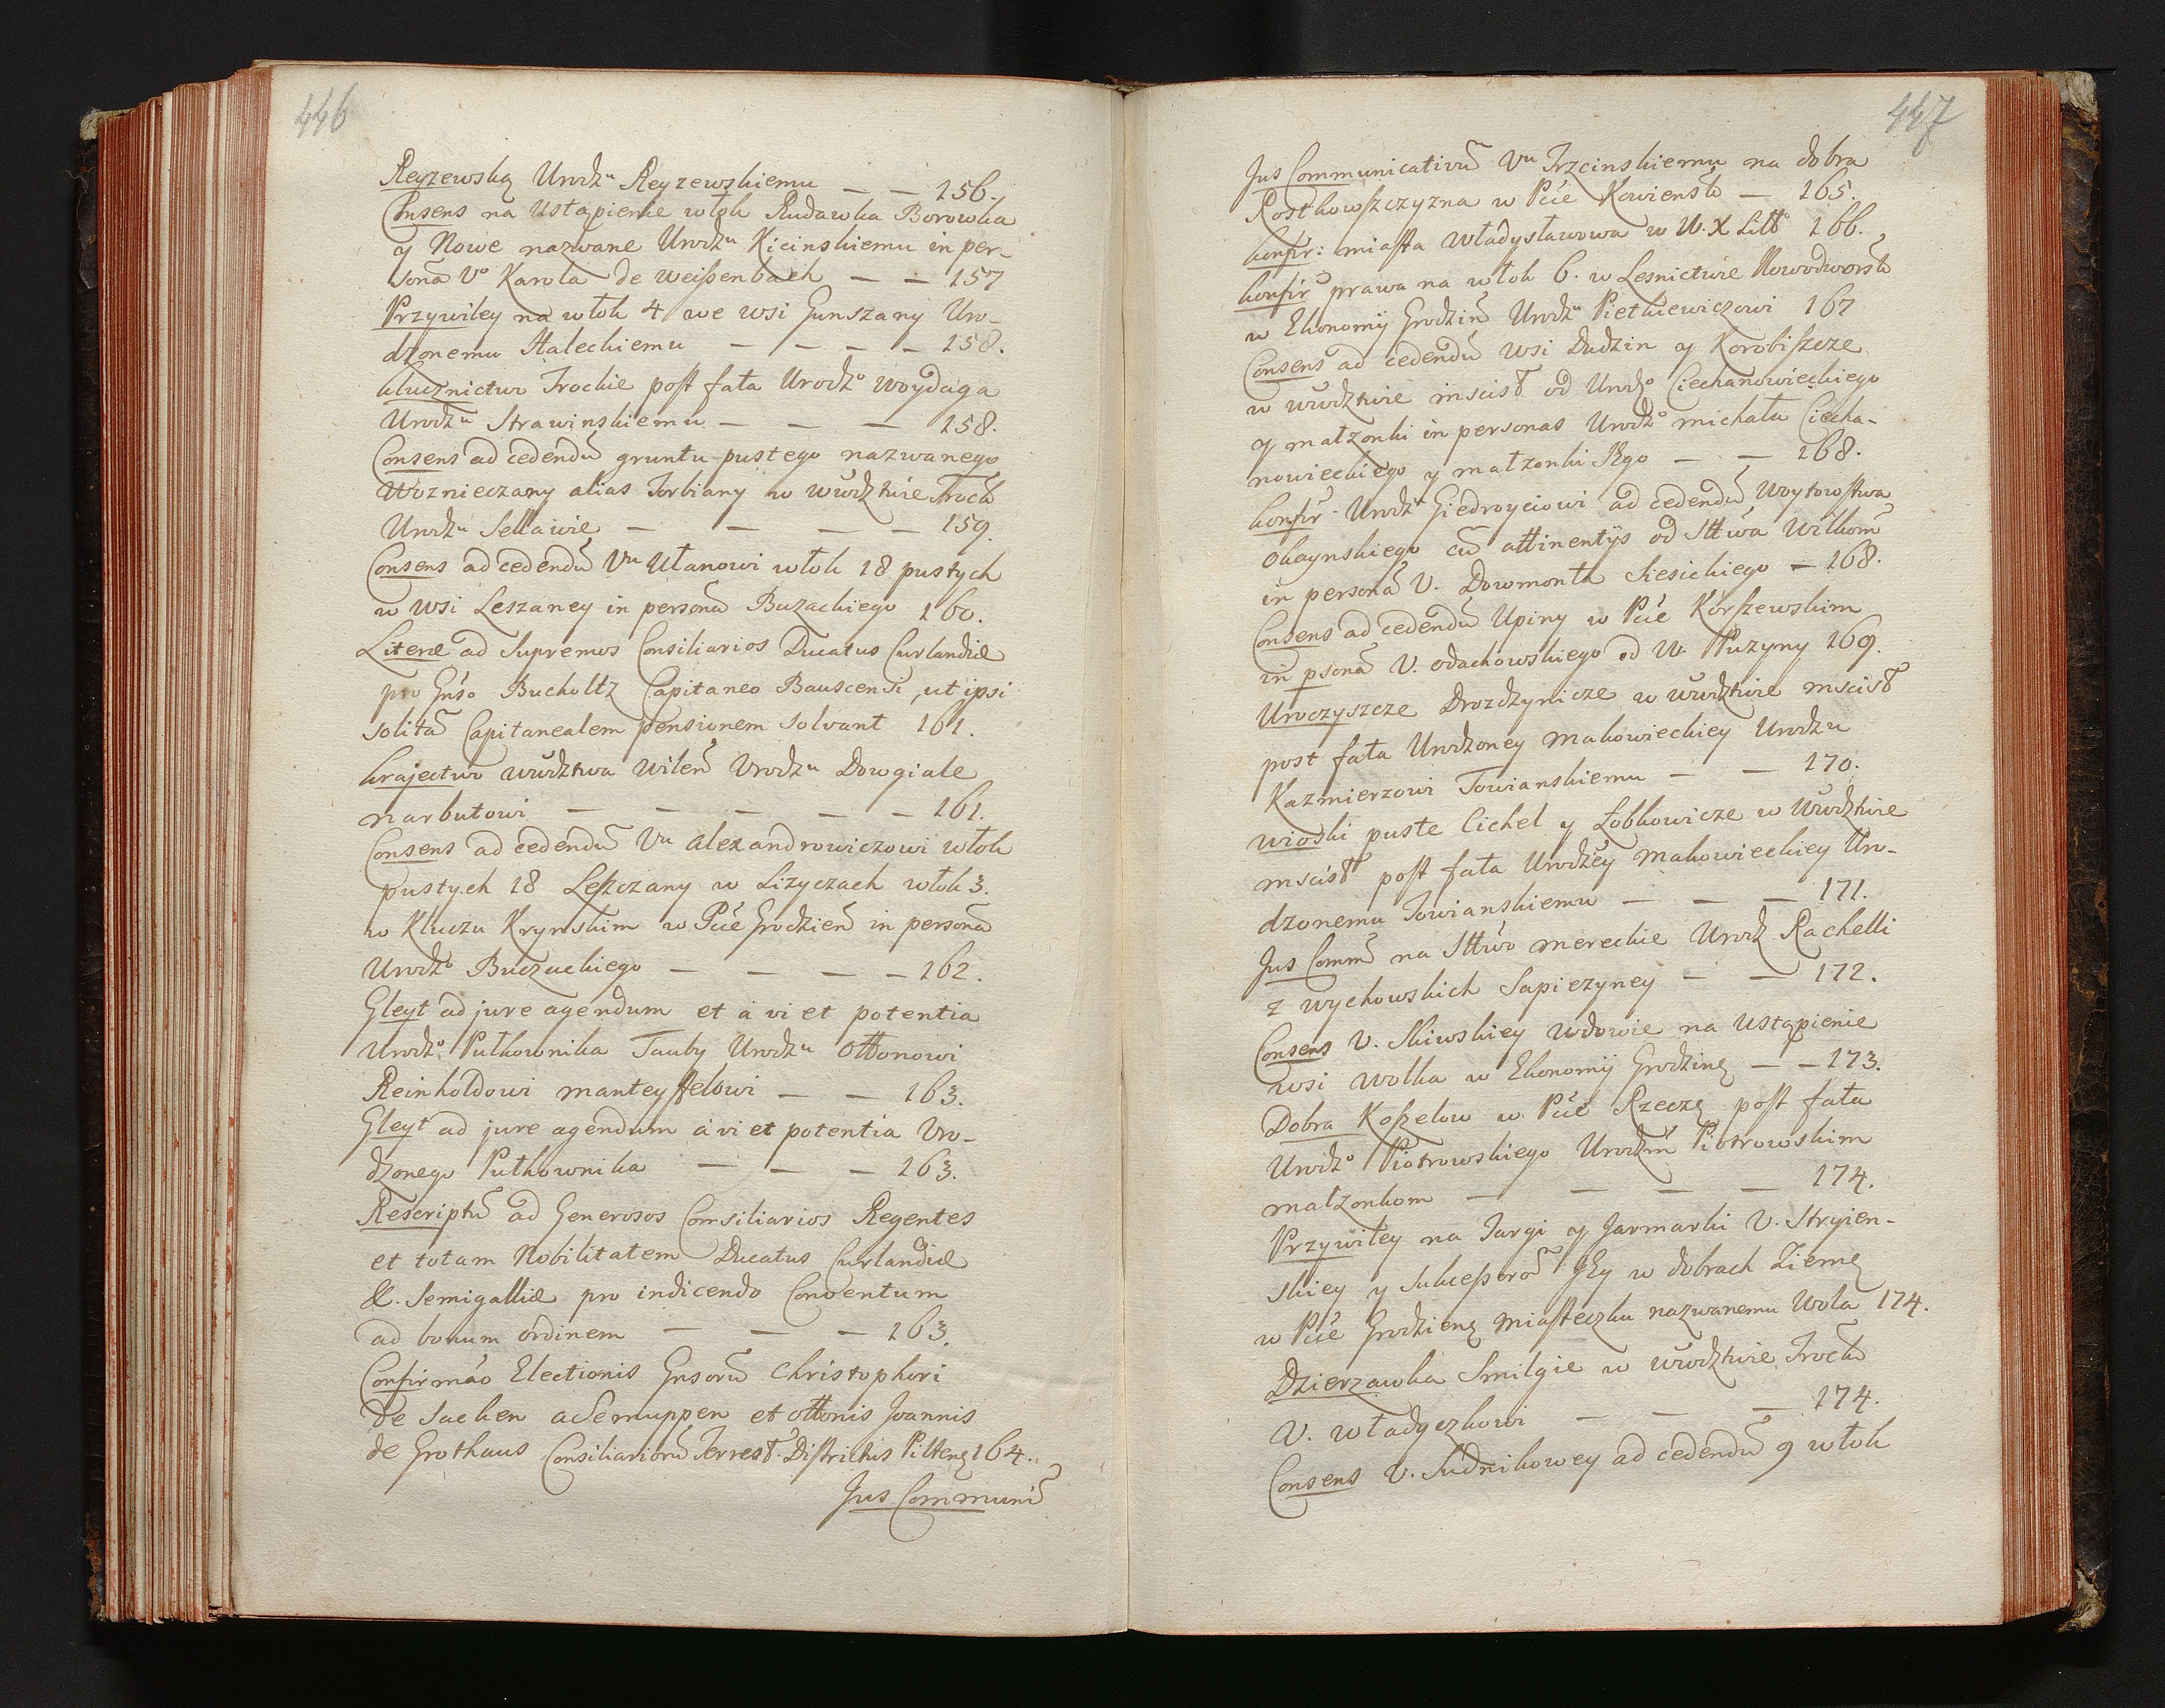 446
Reyzewską Urodzu Reyzewskiemu — — 156.
Consens na Ustąpienie włok Rudawka Borowka
y Nowe nazwane Urodzu Kicinskiemu in per-
sonā Vo Karola de Weissenbach — — 157
Przywiley na włok 4 we wsi Gunszany Uro-
dzonemu Haleckiemu — — — — 158.
Klucznictwo Trockie post fata Urodzo Woydaga
Urodzu Strawinskiemu — — — 158.
Consens ad cedendū gruntu pustego nazwanego
Woznieczany alias Torbiany w Wwdztwie Trock
Urodzu Sellawie — — — — 159.
Consens ad cedendū Vu Ułanowi włok 18 pustych
w wsi Leszaney in personā Buzackiego 160.
Literæ ad Supremos Consiliarios Ducatus Curlandiæ
pro Gnso Bucholtz Capitaneo Bauscensi, ut ipsi
solitā Capitanealem pensionem solvant 161.
Krajectwo Wwdztwa Wileń Vrodzu Dowgiale
Narbutowi — — — — — 161.
Consens ad cedendū Vu Alexandrowiczowi włok
pustych 18 Leszczany w Lizyczach włok 3.
w Kluczu Krynskim w Pcie Grodzień in personā
Urodzo Buczackiego — — — — 162.
Gleyt ad jure agendum et à vi et potentia
Urodzo Pułkownika Tauby Urodzu Ottonowi
Reinholdowi Manteyffelowi — — 163.
Gleyt ad jure agendum à vi et potentia Vro-
dzonego Pułkownika — — — 163.
Rescriptū ad Generosos Consiliarios Regentes
et totam Nobilitatem Ducatus Curlandiæ
&. Semigalliæ pro indicendo Conventum
ad bonum ordinem — — — 163.
Confirmāo Electionis Gnsorū Christophori
de Sacken a Senuppen et Ottonis Joannis
de Grothaus Consiliariorū Terrest. Districtus Pilteng 164.
Jus Communi
447
Jus Communicativū Vu Trzcinskiemu na dobra
Rostkowszczyzna w Pcie Kowiensk — 165.
konfir: miasta Władysławowa w W. X Litt 166.
konfir prawa na włok 6. w Lesnictwie Nowodworsk
w Ekonomij Grodziń Urodzu Pietkiewiczowi 167
Consens ad cedendū wsi Dudzin y Korobiszcze
w Wwdztwie Mscisł od Urodzo Ciechanowieckiego
y małzonki in personas Urodzo Michała Ciecha-
nowieckiego y małzonki JEgo — — 168.
konfir. Urodzu Giedroyciowi ad cedendū Woytowstwa
Okaynskiego cū attinentijs od Sttwa Wiłkom
in personā V. Dowmonta Siesickiego — 168.
Consens ad cedendū Upiny w Pcie Korszewskim
in psonā V. Odachowskiego od W. Puzyny 169.
Uroczyszcze Drozdzynicze w Wwdztwie Mscisł
post fata Urodzoney Makowieckiey Urodzu
Kazmierzowi Towianskiemu — — 170.
Wioski puste Cichel y Łobkowicze w Wwdztwie
Mscisł post fata Urodzey Makowieckiey Uro-
dzonemu Towianskiemu — — — 171.
Jus Comm na Sttwo Mereckie Urodz Rachelli
z Wychowskich Sapiezyney — — 172.
Consens V. Skiwskiey Wdowie na Ustąpienie
wsi Wolka w Ekonomij Grodzing — — 173.
Dobra Koszelow w Pcie Rzeczg post fata
Urodzo Piotrowskiego Urodzm Piotrowskim
małzonkom — — — — 174.
Przywiley na Targi y Jarmarki V. Stryien-
skiey y Sukcessorō JEy w dobrach Ziemg
w Pcie Grodzieng Miasteczku nazwanemu Wola 174.
Dzierzawka Smilgie w Wwdztwie Trock
V. Władyczkowi — — — 174.
Consens V. Sudnikowey ad cedendū 9 włok